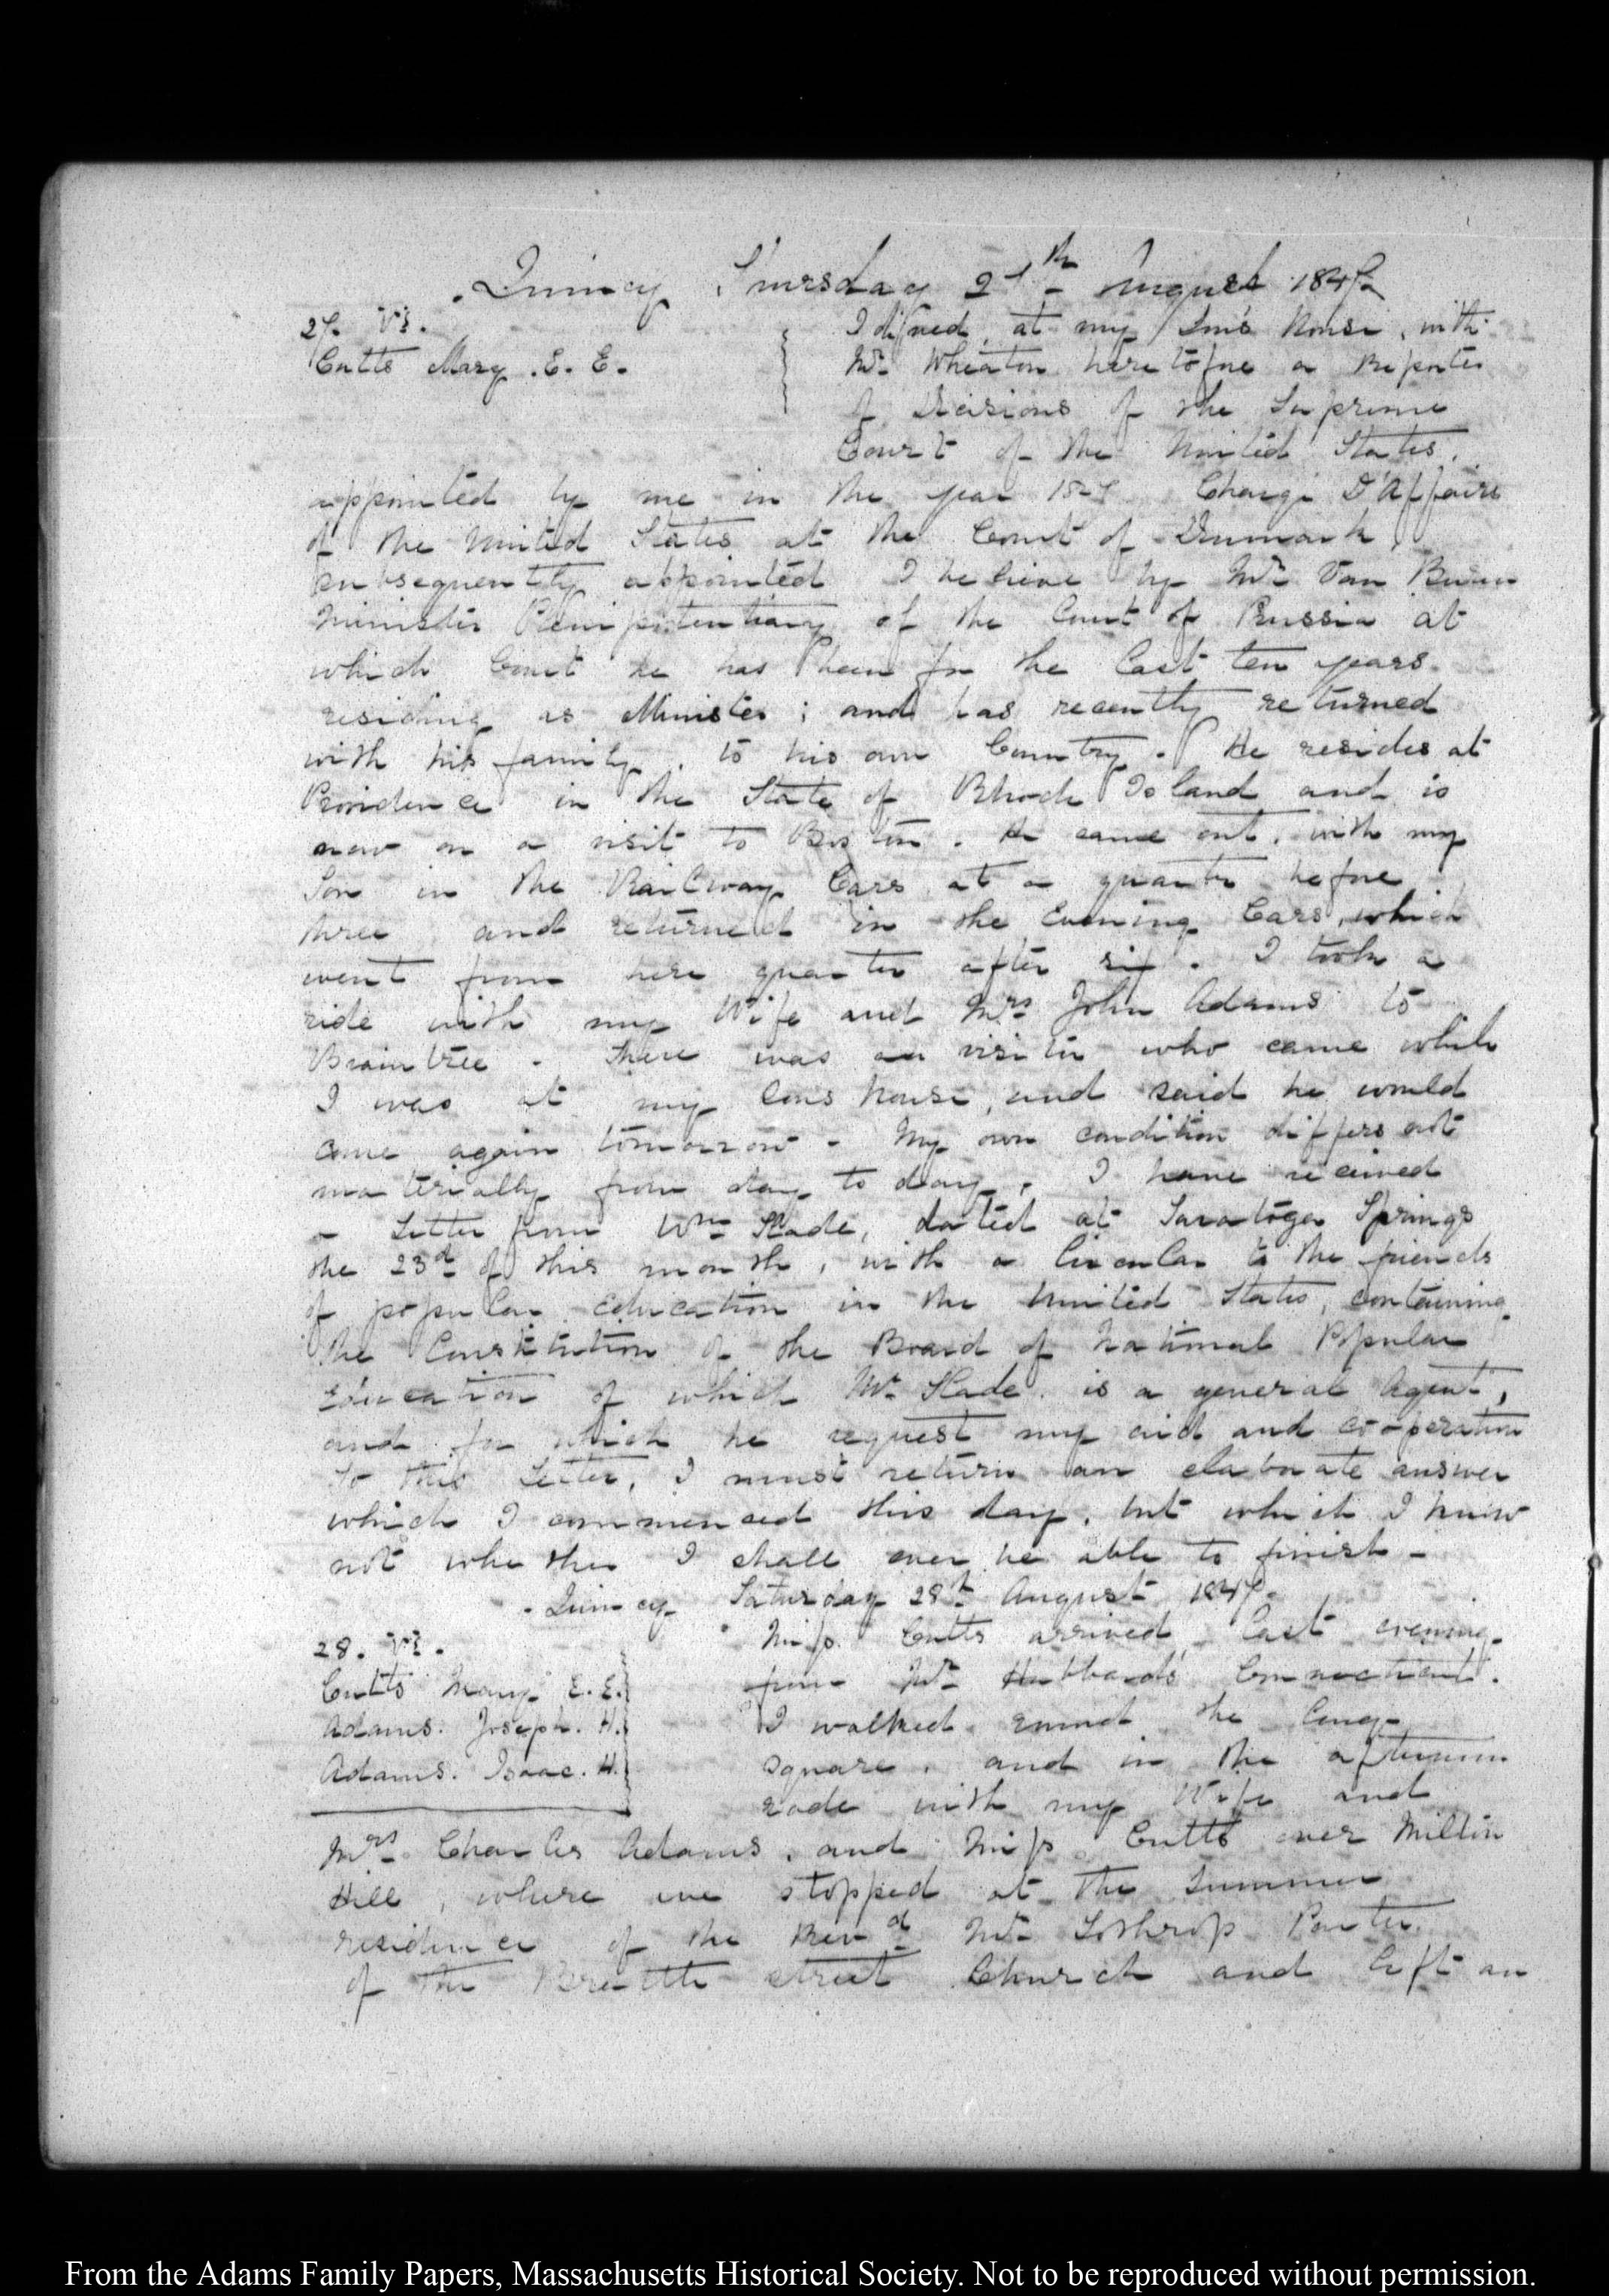 Quincy Thursday 27th August 1847.
27. VI.
Cutts Mary. E. E.
I dined at my Son's House, with
Mr. Wheaton heretofore a Reporter
of Decisions of the Supreme
Court of the United States.
appointed by me in the year Chargé D'Affaires
of the United States at the Court of Denmark,
subsequently appointed I believe by Mr. Van Buren
Minister Plenipotentiary of the Court of Prussia at
which Court he has been for the last ten years
residing as Minister; and has recently returned
with his family, to his own Country. He resides at
Providence in the State of Rhode Island and is
now on a visit to Boston. He came out, with my
Son in the Railway Cars at a quarter before
three and returned in the Evening Cars, which
went from here quarter after six. I took a
ride with my Wife and Mrs John Adams to
Braintree. There was a visitor who came while
I was at my Sons house, and said he would
come again tomorrow. My own condition differs not
materially from day to day. I have received
a Letter from Wm Slade, dated at Saratoga Springs
the 23d of this month, with a Circular to the friends
of popular education in the United States, containing
the Constitution of the Board of National Popular
Education of which Mr Slade is a general Agent,
and for which he request my aid and cooperation
To this Letter, I must return an elaborate answer
which I commenced this day, but which I know
not whether I shall ever be able to finish -
Quincy Saturday 28th August 1847.
28. VI.
Cutts Mary E. E.
Adams. Joseph. H.
Adams. Isaac. H.
Miss Cutts arrived last evening
from Mr Hubbard's Connecticut.
I walked round the long
square, and in the afternoon
rode with my Wife and
Mrs. Charles Adams, and Miss Cutts over Milton
Hill, where we stopped at the summer
residence of the Revd Mr Lothrop Pastor
of the Brattle street Church and left an
From the Adams Family Papers, Massachusetts Historical Society. Not to be reproduced without permission.